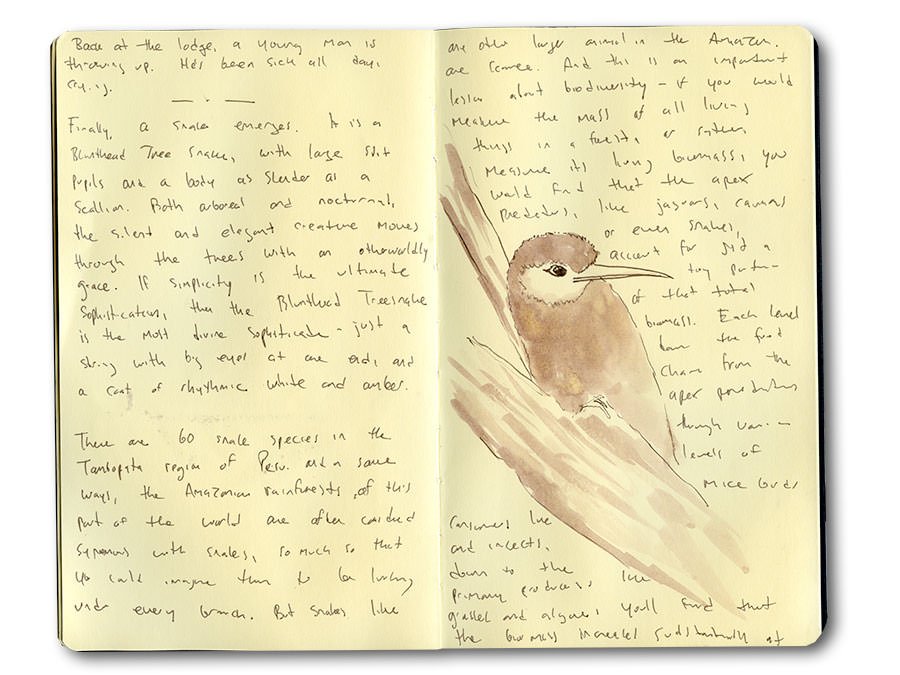 Back at the lodge, a young man is
throwing up. He's been sick all day,
crying.
Finally, a snake emerges. It is a
Blunthead Tree Snake, with large slit
pupils and a body as slender as a
scallion. Both arboreal and nocturnal,
the silent and elegant creature moves
through the trees with an otherworldly
grace. If simplicity is the ultimate
sophistication, then the Blunthead Treesnake
is the most divine sophisticate - just a
string with big eyes at one end, and
a coat of rhythmic white and amber.
There are 60 snake species in the
Tambopata region of Peru. and in some
ways, the Amazonian rainforests of this
part of the world are often considered
synonymous with snakes, so much so that
you could imagine them to be lurking
under every branch. But snakes like
are other larger animal in the Amazon.
are scarce. And this is an important
lesson about biodiversity - if you would
measure the mass of all living
things in a forest, or rather,
measure its living biomass, you
would find that the apex
predators, like jaguars, caimans
or even snakes,
account for just a
tiny portion
of that total
biomass. Each level
down the food
chain from the
apex predators
through vari-
levels of
mice birds
consumers like
and insects,
down to the
primary producers like
grasses and algaes, you'll find that
the biomass increases substantially at